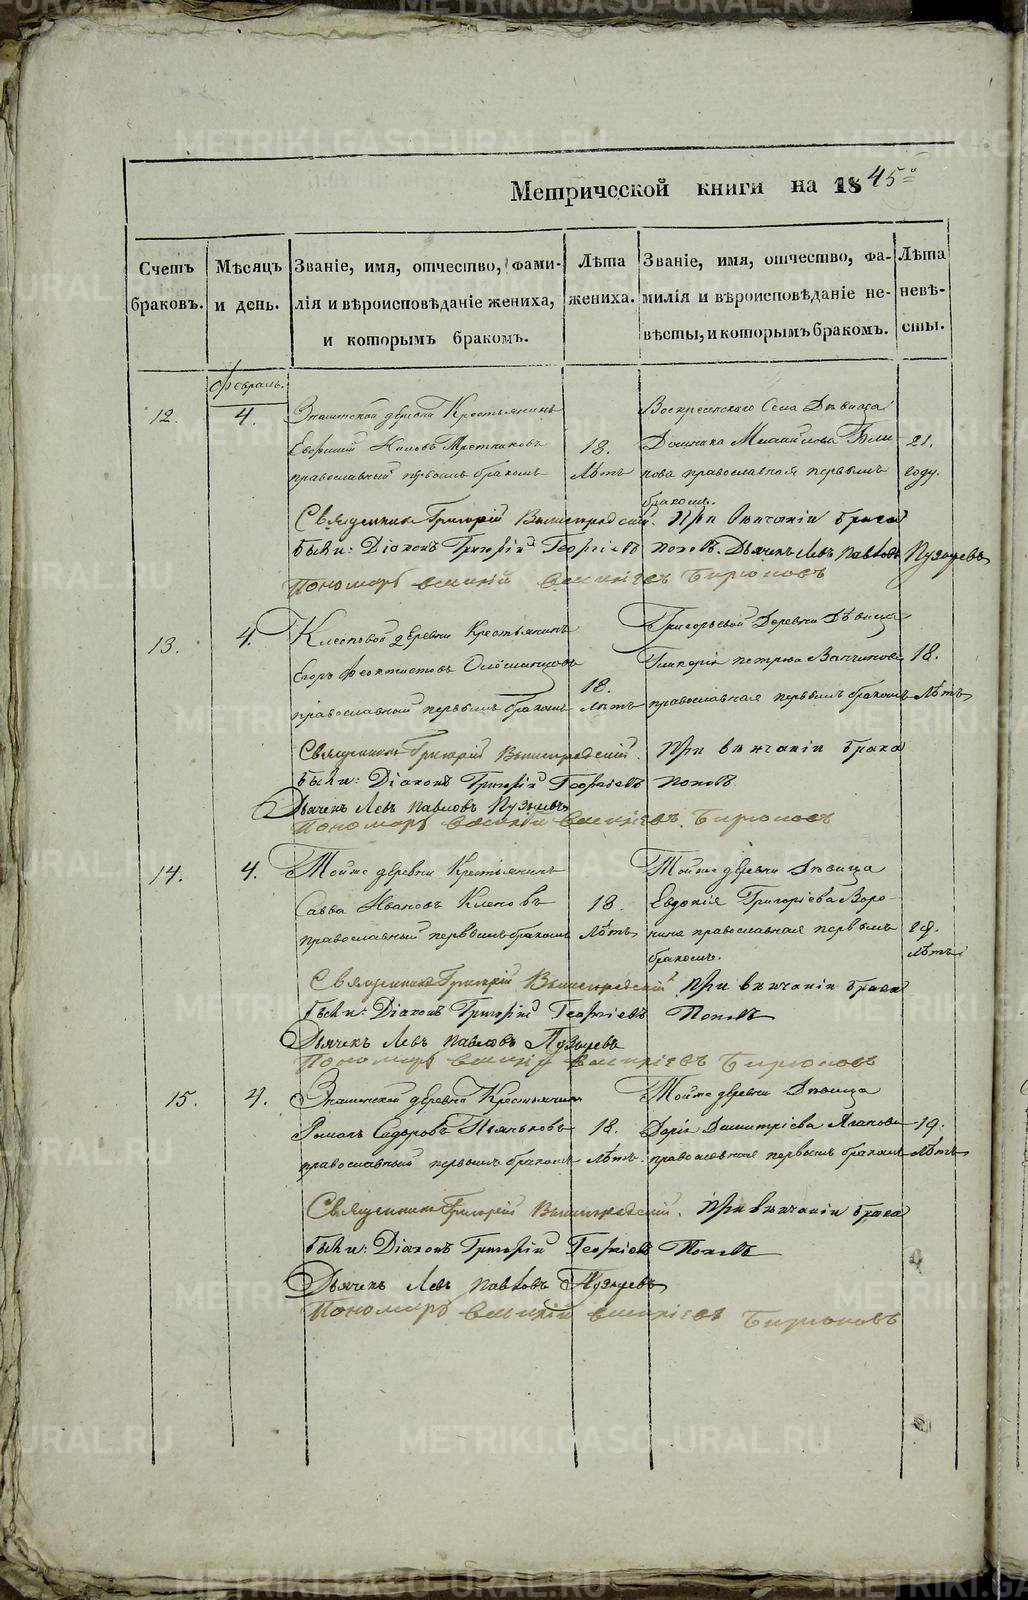 Метрической книги на 1845го
Счетъ браковъ.
Мѣсяцъ и день.
Званіе, имя, отчество, фамилія и вѣроисповѣданіе жениха, и которымъ бракомъ.
Лѣта жениха.
Званіе, имя, отчество, фамилія и вѣроисповѣданіе невѣсты, и которымъ бракомъ.
Лѣта невѣсты.
Февраль.
12. 4. Знаменской деревни Крестьянинъ Воскресенскаго Села Дѣвица
18. Михайлова 21.
православный первымъ бракомъ Лѣтъ нова православная первымъ году.
бракомъ.
Священникъ Григорій Вышегородскій. При вѣнчаніи брака
были: Діаконъ Григорій Георгіевъ Поповъ. Дьячекъ Левъ Павловъ Пузыревъ
Пономарь Василій Васильевъ Бирюковъ
13. 4. деревни Крестьянинъ Григорьевой Деревни Дѣвица
Егоръ Феоктистовъ Гликерія Петрова 18.
18.
православный первымъ бракомъ Лѣтъ православная первымъ бракомъ Лѣтъ
Священникъ Григорій Вышегородскій. При вѣнчаніи брака
были: Діаконъ Григорій Георгіевъ Поповъ
Дьячекъ Левъ Павловъ Пузыревъ
Пономарь Василій Васильевъ Бирюковъ
14. 4. Тойже деревни Крестьянинъ Тойже деревни Дѣвица
Савва Ивановъ Клеповъ 18. Евдокія Григоріева Воро-
православный первымъ бракомъ Лѣтъ нина православная первымъ 19.
бракомъ. лѣтъ
Священникъ Григорій Вышегородскій При вѣнчаніи брака
были: Діаконъ Григорій Георгіевъ Поповъ
Дьячекъ Левъ Павловъ Пузыревъ
Пономарь Василій Васильевъ Бирюковъ
15. 4. Знаменской деревни Крестьянинъ Тойже деревни Дѣвица
Романъ Сидоровъ Пьянковъ 18. Дарія Димитріева Агапова 19.
православный первымъ бракомъ Лѣтъ. православная первымъ бракомъ Лѣтъ
Священникъ Григорій Вышегородскій. При вѣнчаніи брака
были: Діаконъ Григорій Георгіевъ Поповъ
Дьячекъ Левъ Павловъ Пузыревъ
Пономарь Василій Васильевъ Бирюковъ
METRIKI.GASO-URAL.RU